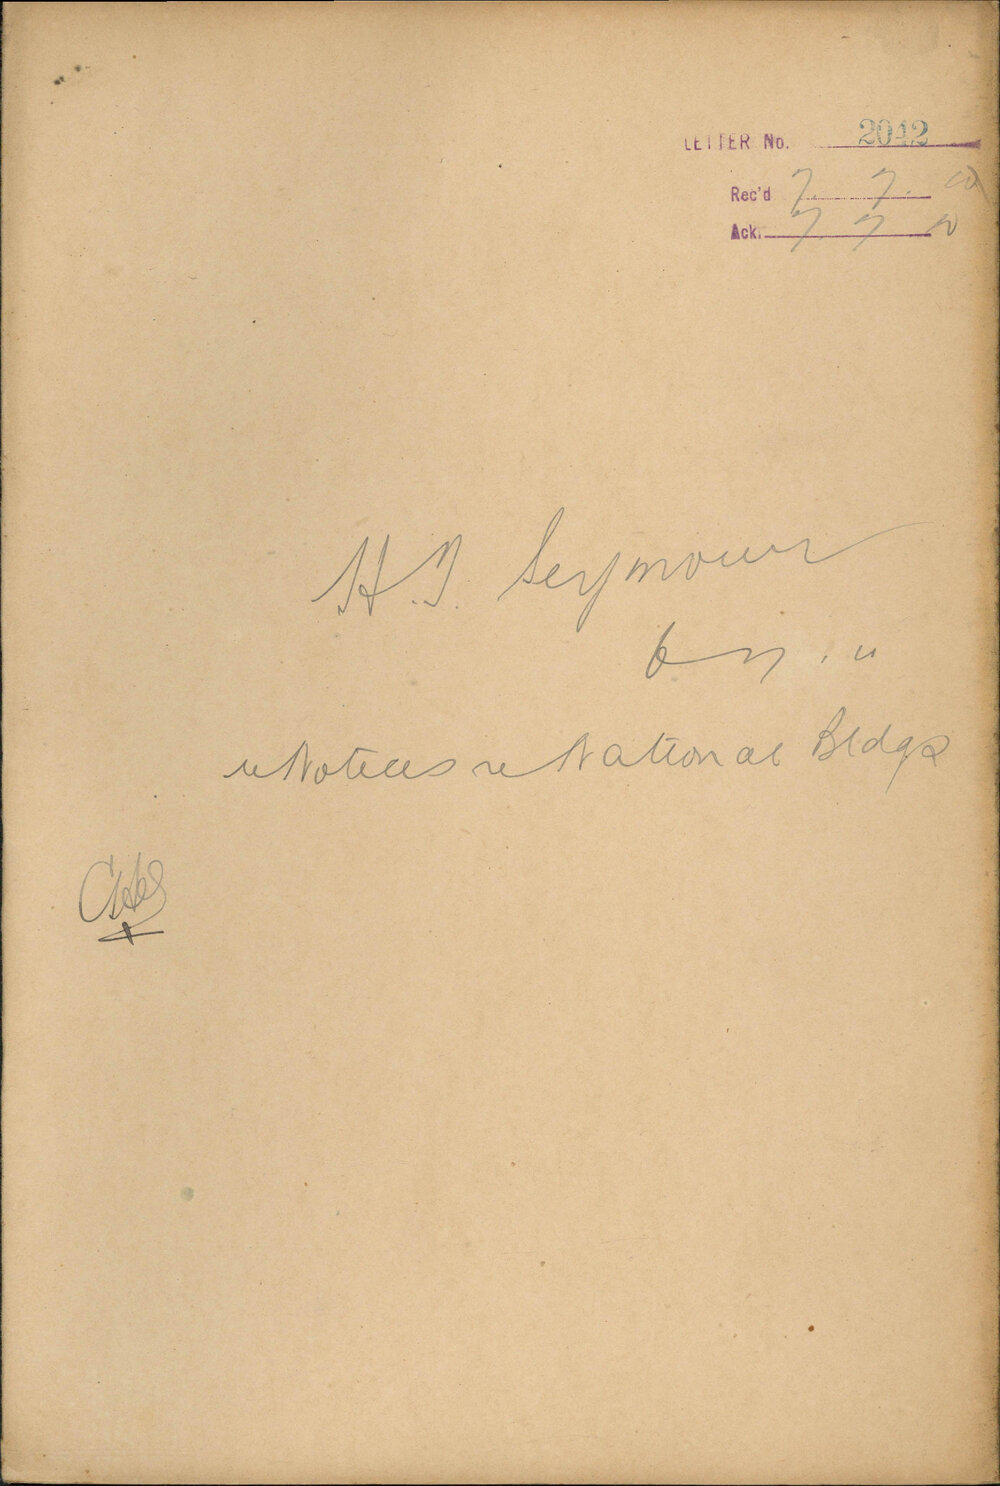 LETTER No. 2042
Rec'd 7. 7.
Ack. 7 7
H.J. Seymour
6 7
re Notices re National Bldgs